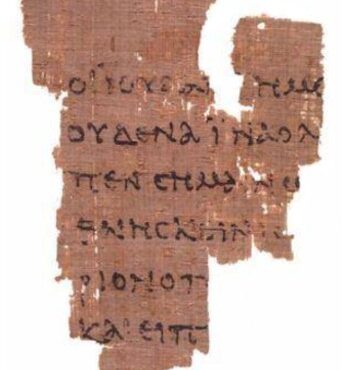 ΟΙ ΪΟΥΔΑΙ ΗΜΕ
ΟΥΔΕΝΑ ΪΝΑ Ο Λ
ΠΕΝ ϹΗΜΑΙΝΩ
ΘΝΗϹΚΕΙΝ
ΡΙΟΝ Ο Π
ΚΑΙ ΕΙΠ